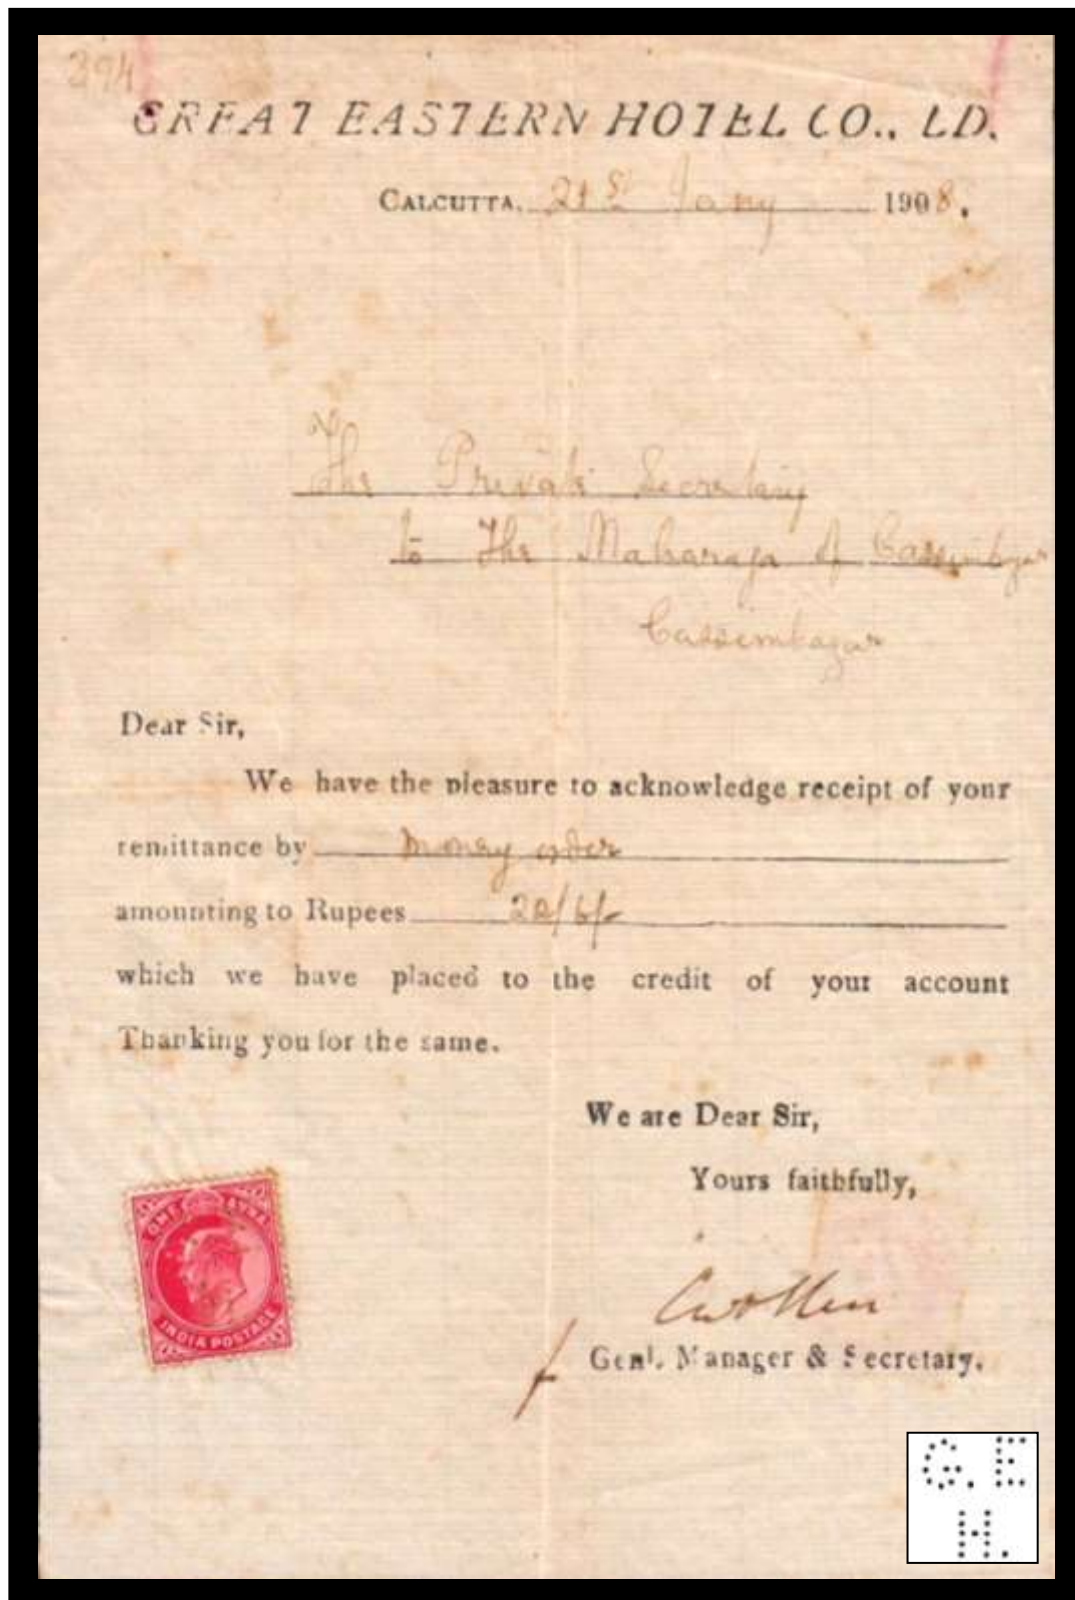 394
GREAT EASTERN HOTEL CO., LD.
CALCUTTA. 21st Jany 1908.
The Private Secretary
to The Maharaja of Cassimbazar
Cassimbazar
Dear Sir,
We have the pleasure to acknowledge receipt of your
remittance by money order
amounting to Rupees
which we have placed to the credit of your account
Thanking you for the same.
We are Dear Sir,
Yours faithfully,
Genl. Manager & Secretary.
ONE ANNA
INDIA POSTAGE
G. E
H.